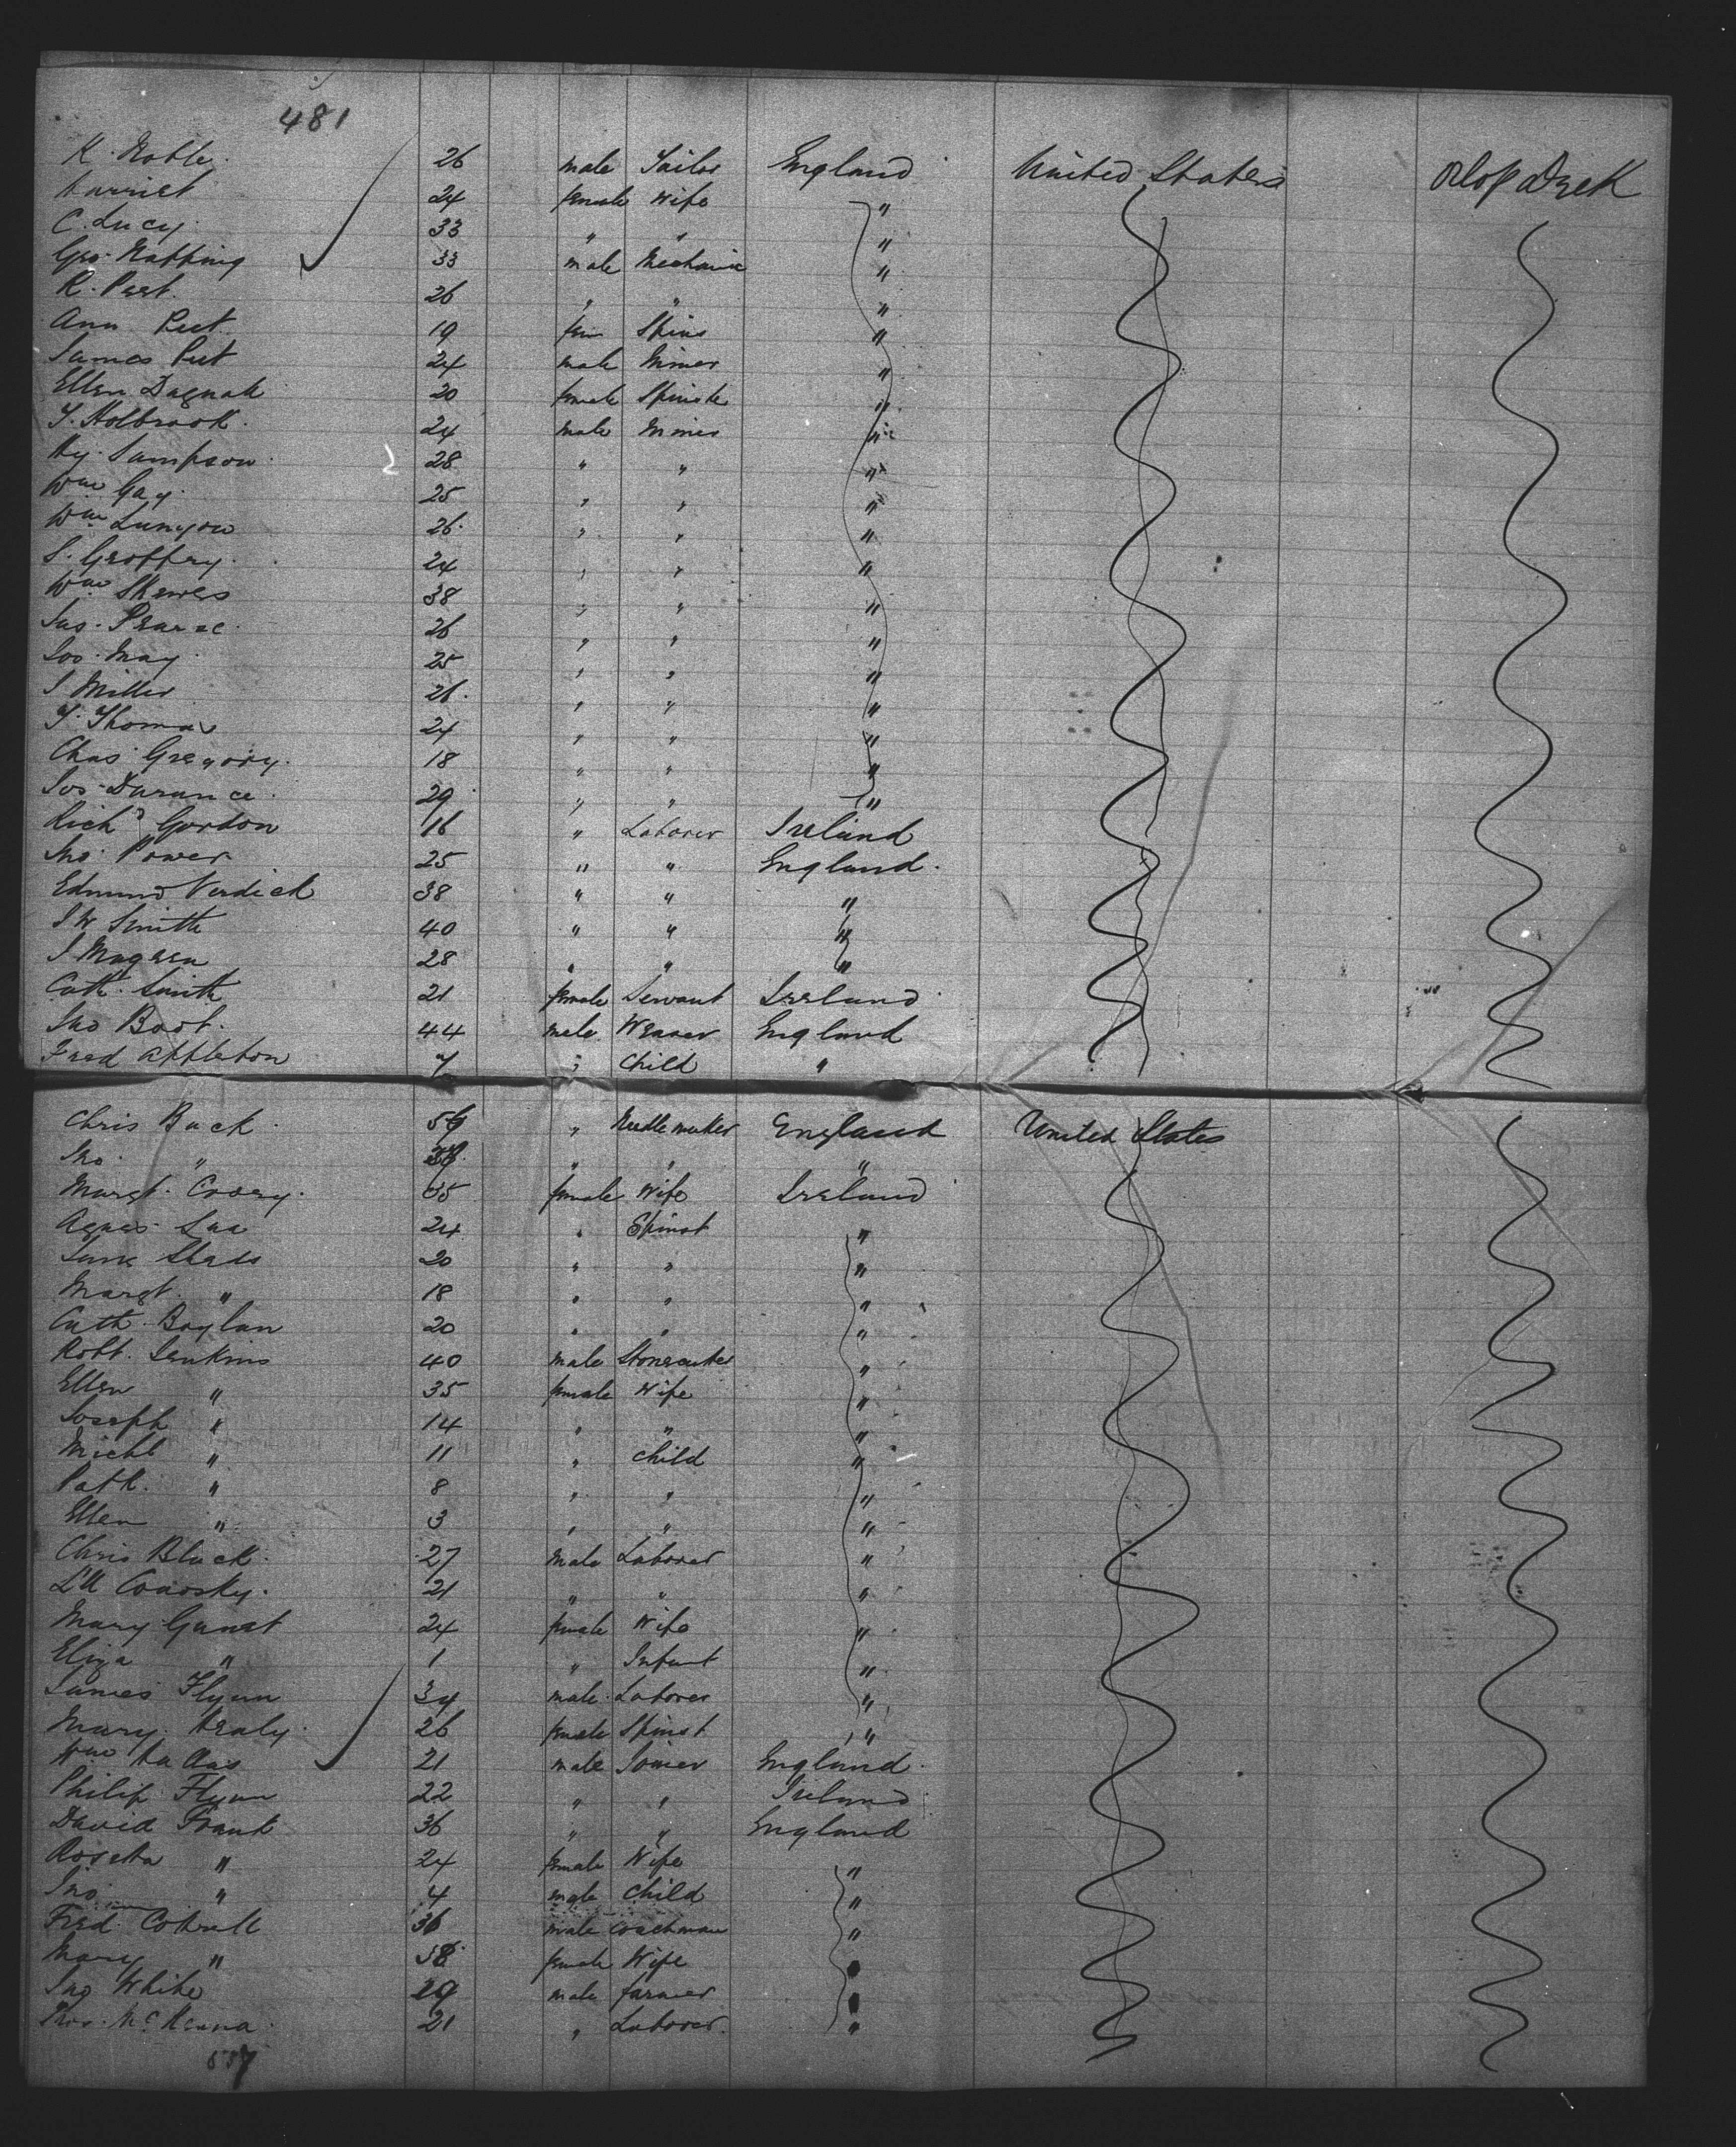 481
K. Noble 26 male Tailor England United States Orlop Deck
Harriet 24 female Wife "
C. Lucy 33 " " "
Geo. Napping 33 male Mechanic "
R. Peet 26 " " "
Ann Peet 19 fem Spins "
James Peet 24 male Miner "
Ellen Dagnah 20 female Spinste "
T. Holbrook 24 male Miner "
Hy. Sampson 28 " " "
Wm Gay 25 " " "
Wm 26 " " "
S. Geoffery 24 " " "
Wm Skewes 38 " " "
Jas. Pearse 26 " " "
Jos. May 25 " " "
J Miller 26 " " "
T. Thomas 24 " " "
Chas Gregory 18 " " "
Jos. Durance 29 " " "
Richd Gordon 16 " Laborer Ireland
Jno. Power 25 " " England
Edmund Verdick 38 " " "
J W Smith 40 " " "
J Mageen 28 " " "
Cath. Smith 21 female Servant Ireland
Jno Boot 44 male Weaver England
Fred Appleton 7 " Child "
Chris Buck " Needle maker England United States
Jno. " " " "
Margt. 35 female Wife Ireland
Agnes 24 " Spinst "
Jane Shads 20 " " "
Margt. " 18 " " "
Cath. Boylan 20 " " "
Robt. Jenkins 40 male Stonecutter "
Ellen " 35 female Wife "
Joseph " 14 " " "
Michl " 11 " Child "
Patk. " 8 " " "
Ellen " 3 " " "
Chris Black 27 male Laborer "
Conosky 21 " " "
Mary Garrat 24 female Wife "
Eliza " 1 " Infant "
James Flynn 34 male Laborer "
Mary Healy 26 female Spinst "
Wm 21 male Joiner England
Philip Flynn 22 " " Ireland
David Frank 36 " " England
Roseta " 24 female Wife "
Jno " 4 male Child "
Fred Cotrell 36 male Coachman "
Mary " 38 female Wife
Jno White 29 male farmer
Thos. McKenna 21 " Laborer "